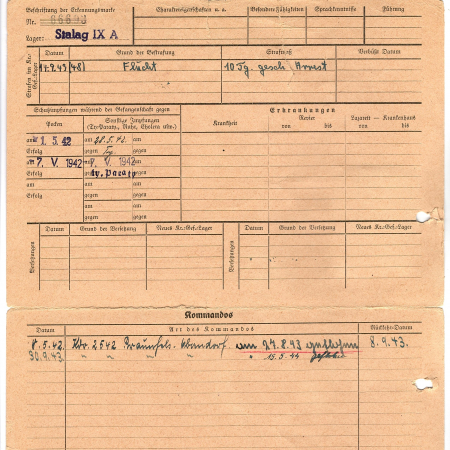 Beschriftung der Erkennungsmarke
Charaktereigenschaften u. a.
Besondere Fähigkeiten
Sprachkenntnisse
Führung
Nr.
Lager: Stalag IX A
Strafen im Kr.-Gef.-Lager
Datum
Grund der Bestrafung
Strafmaß
Verbüßt Datum
Flucht
10 Tg. gesch. Arrest
Schutzimpfungen während der Gefangenschaft gegen
Erkrankungen
Pocken
Sonstige Impfungen
(Ty-Paraty., Ruhr, Cholera usw.)
Krankheit
Revier
von bis
Lazarett - Krankenhaus
von bis
am 1. 5. 42 am 28.5.42. am
Erfolg gegen Ty. gegen
am 7. V. 1942 V. 1942 am
Erfolg gegen Ty. Paraty gegen
am am am
Erfolg gegen gegen
am am
gegen gegen
Versetzungen
Datum
Grund der Versetzung
Neues Kr.-Gef.-Lager
Versetzungen
Datum
Grund der Versetzung
Neues Kr.-Gef.-Lager
Kommandos
Datum
Art des Kommandos
Rückkehr-Datum
8.5.42. 2542 Braunfels- am 27.8.43 geflohen 8.9.43.
30.9.43. " " " " " 15.5.44